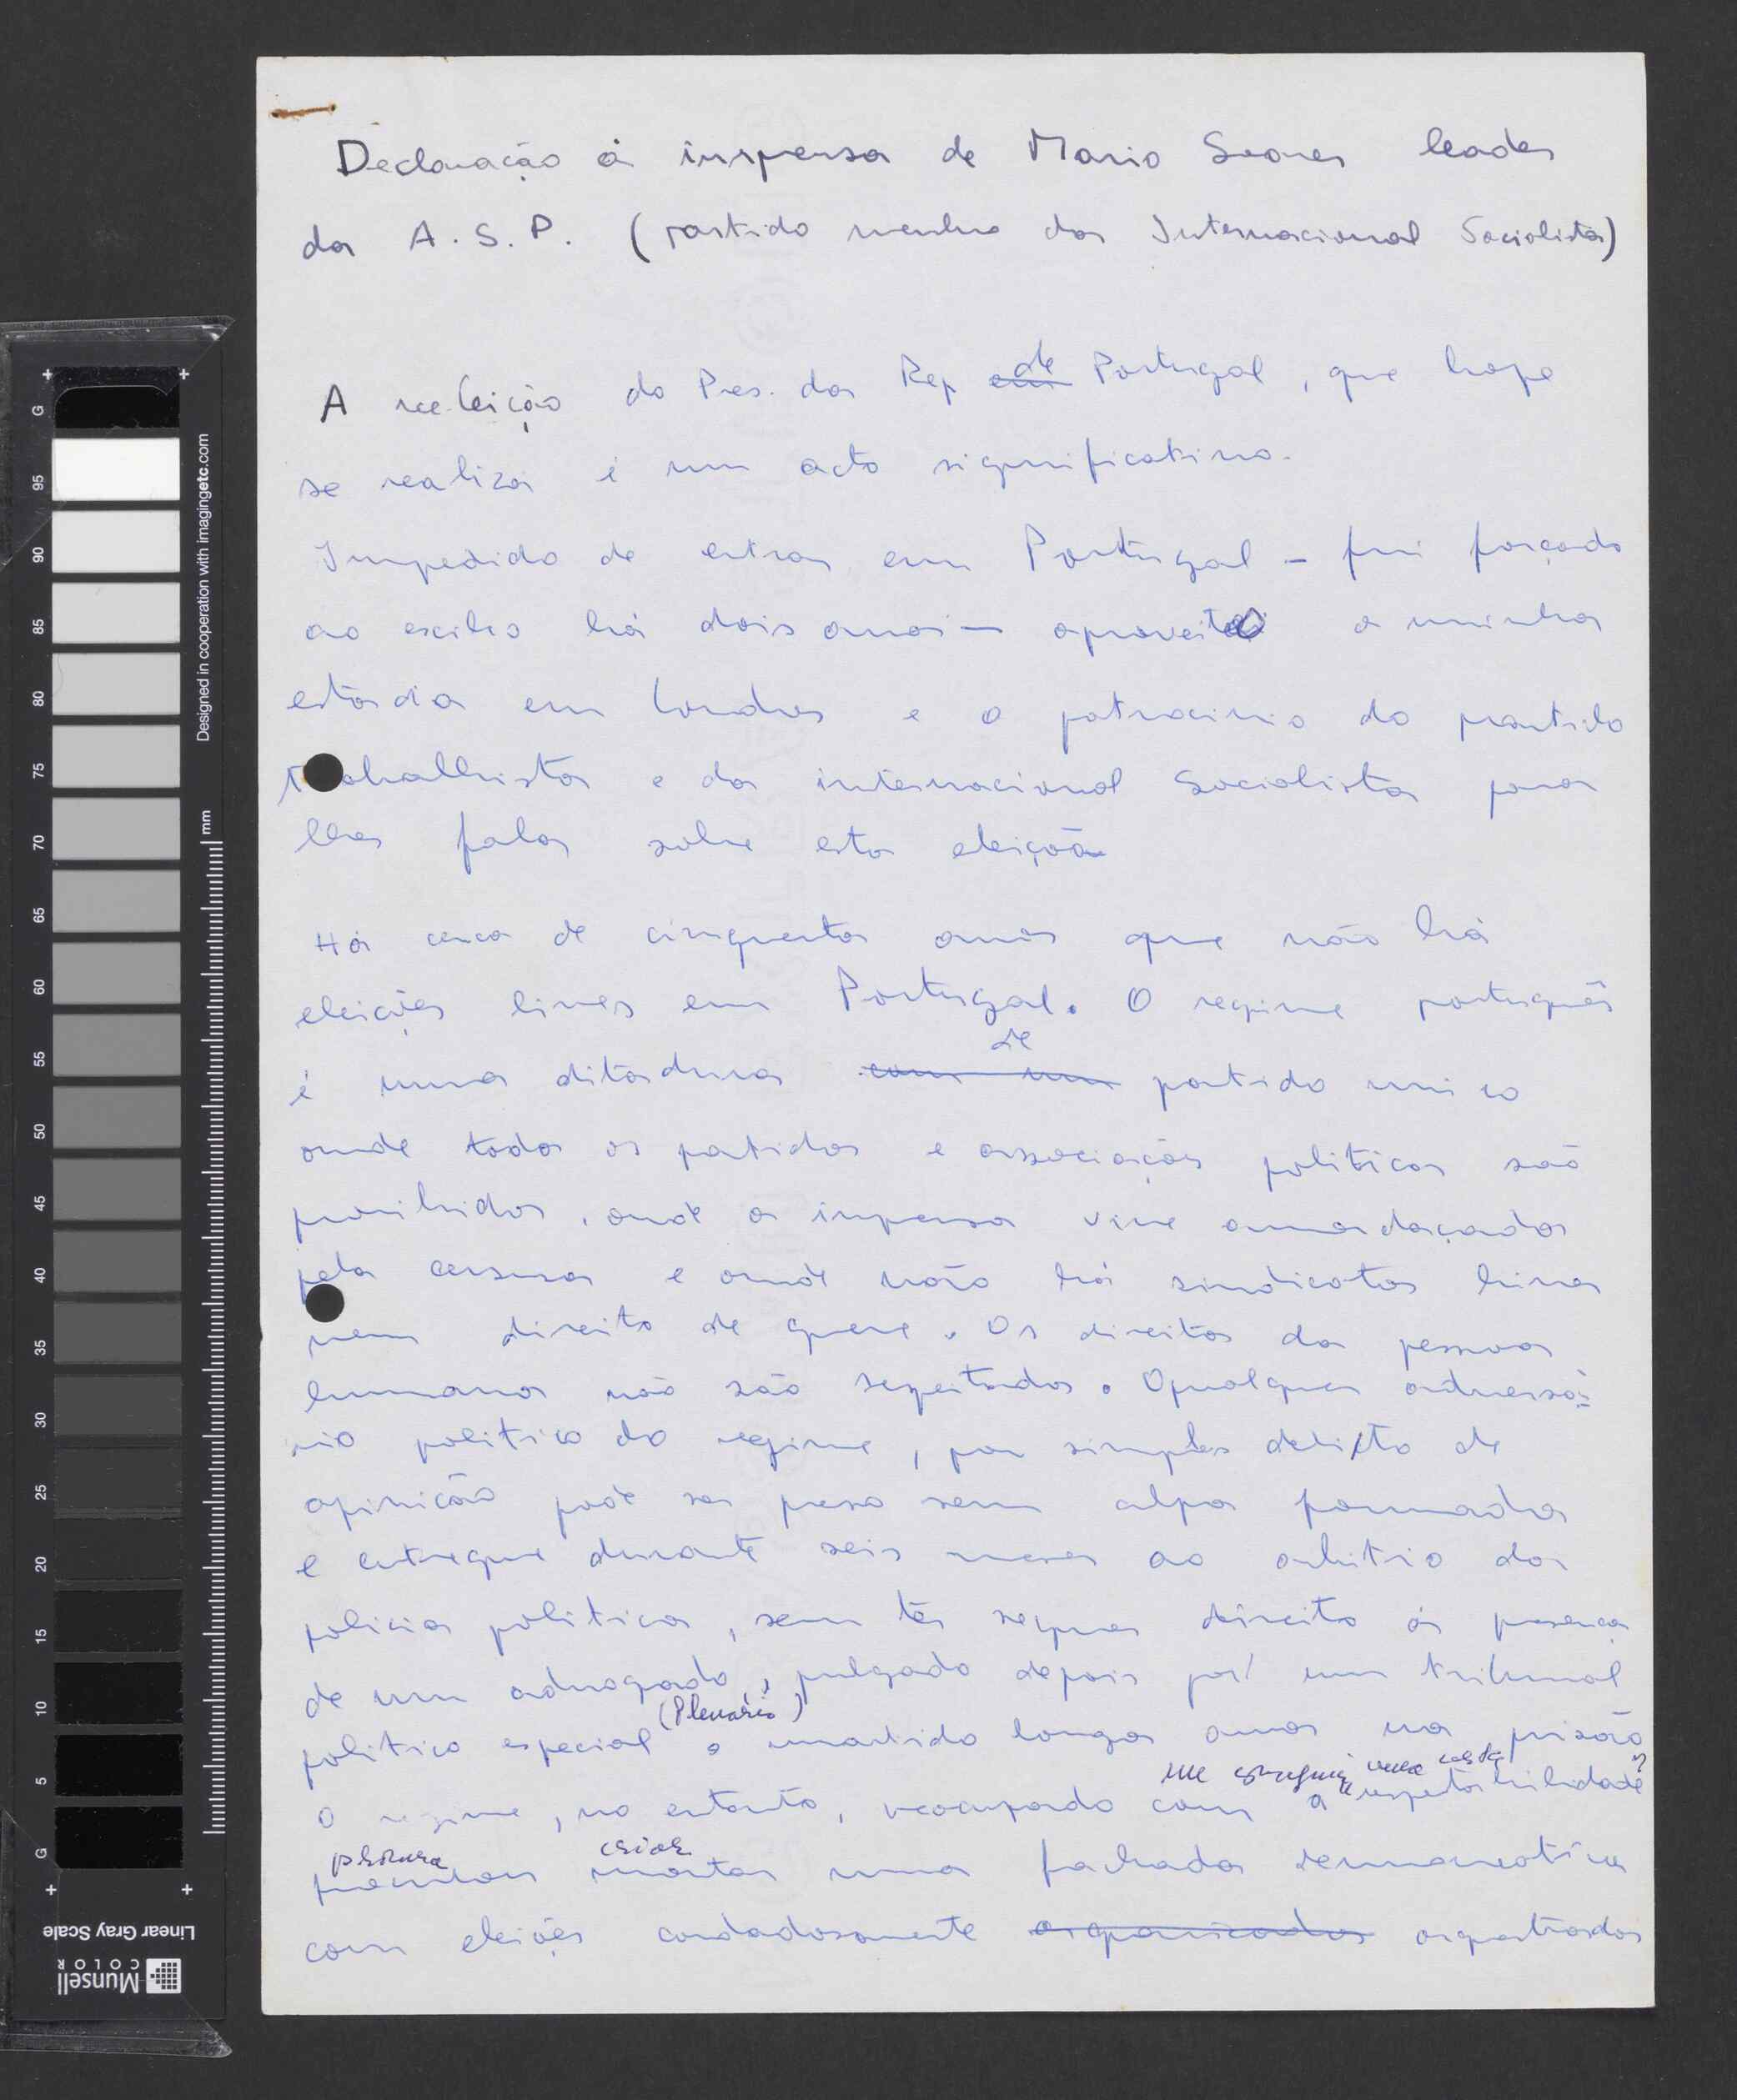 Declaração á imprensa de Mario Soares leader
da A.S.P. (partido membro da Internacional Socialista)
A reeleição do Pres. da Rep ~~em~~ de Portugal, que hoje
se realiza é um acto significativo.
Impedido de entrar em Portugal – fui forçado
ao exilio há dois anos – aproveito a minha
estadia em Londres e o patrocinio do partido
trabalhista e da internacional Socialista para
lhes falar sobre esta eleição
Há cerca de cinquenta anos que não há
eleições livres em Portugal. O regime português
é uma ditadura ~~com um~~ de partido unico
onde todos os partidos e associações politicas são
proibidos, onde a imprensa vive amordaçada
pela censura e onde não há sindicatos livres
nem direito de greve. Os direitos da pessoa
humana não são respeitados. Qualquer adversá-
rio politico do regime, por simples delito de
opinião pode ser preso sem culpa formada
e entregue durante seis meses ao arbitrio da
policia politica, sem ter sequer direito á presença
de um advogado, julgado depois por um tribunal
politico especial (Plenário) e mantido longos anos na prisão
O regime, no entanto, preocupado com a "respeitabilidade"
em conseguir uma certa
procura criar
montar uma fachada democratica
com eleições cuidadosamente ~~organizadas~~ orquestradas
G 95 90 85 80 75 70 65 60 55 50 45 40 35 30 25 20 15 10 5 G
mm
Designed in cooperation with imagingetc.com
Linear Gray Scale
Munsell
COLOR